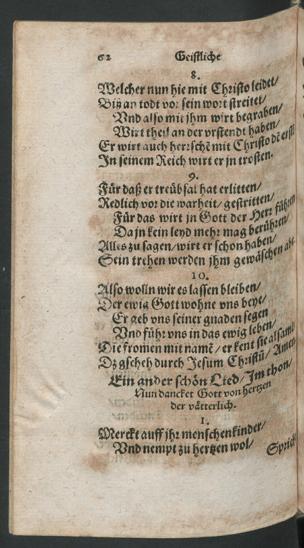 62 Geistliche
8.
Welcher nun hie mit Christo leidet/
Biß an todt vor sein wort streitet/
Vnd also mit jhm wirt begraben/
Wirt theil an der vrstendt haben/
Er wirt auch herrschē mit Christo dē erstē
In seinem Reich wirt er jn trosten.
9.
Für daß er treübsal hat erlitten/
Redlich vor die warheit/ gestritten/
Für das wirt jn Gott der Herr führen
Da jn kein leyd mehr mag berühren/
Alles zu sagen/ wirt er schon haben/
Sein trehen werden jhm gewäschen abe
10.
Also wolln wir es lassen bleiben/
Der ewig Gott wohne vns beye/
Er geb vns seiner gnaden segen
Vnd führ vns in das ewig leben/
Die fromen mit namē/ er kent sie alsamē
Dz gscheh durch Jesum Christū/ Amen
Ein ander schön Lied/ Im thon/
Nun dancket Gott von hertzen
der vätterlich.
1.
Merckt auff jhr menschenkinder/
Vnd nempt zu hertzen wol/
Sprich